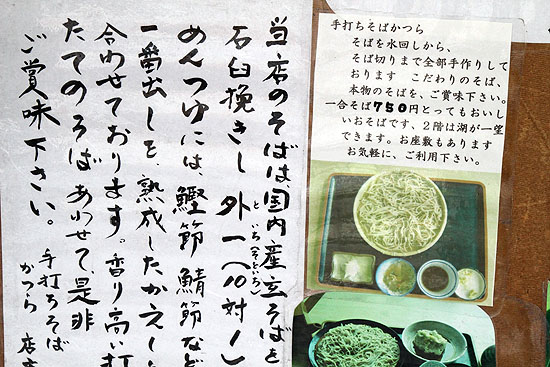 当店のそばは、国内産玄そばを
石臼挽きし 外一(10対1)
といち(そといち)
めんつゆには、鰹節 鯖節など
一番出しを、熟成したかえし
合わせております。香り高い打
たてのそば あわせて、是非
ご賞味下さい。
手打ちそば
かつら 店
手打ちそばかつら
そばを水回しから、
そば切りまで全部手作りして
おります こだわりのそば、
本物のそばを、ご賞味下さい。
一合そば750円とってもおいし
いおそばです、2階は湖が一望
できます。お座敷もあります
お気軽に、ご利用下さい。